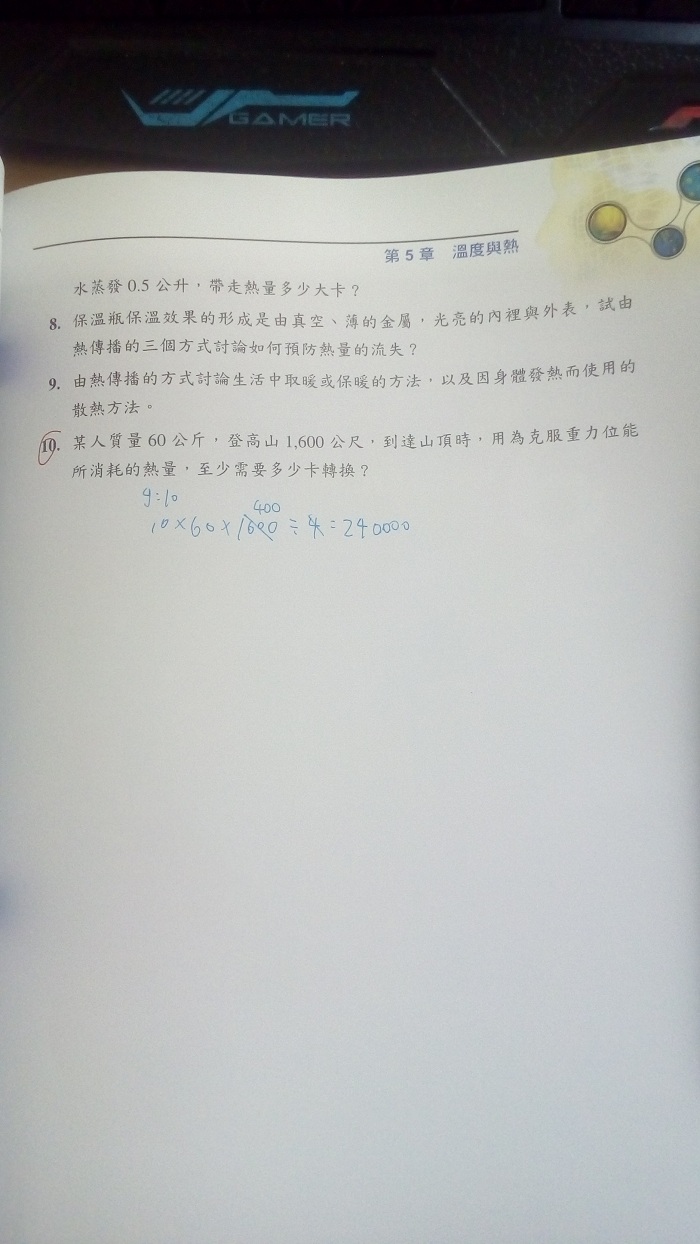 GAMER
第 5 章 溫度與熱
水蒸發 0.5 公升，帶走熱量多少大卡？
8. 保溫瓶保溫效果的形成是由真空、薄的金屬，光亮的內裡與外表，試由
熱傳播的三個方式討論如何預防熱量的流失？
9. 由熱傳播的方式討論生活中取暖或保暖的方法，以及因身體發熱而使用的
散熱方法。
10. 某人質量 60 公斤，登高山 1,600 公尺，到達山頂時，用為克服重力位能
所消耗的熱量，至少需要多少卡轉換？
g=10
400
10×60×1600÷4=240000